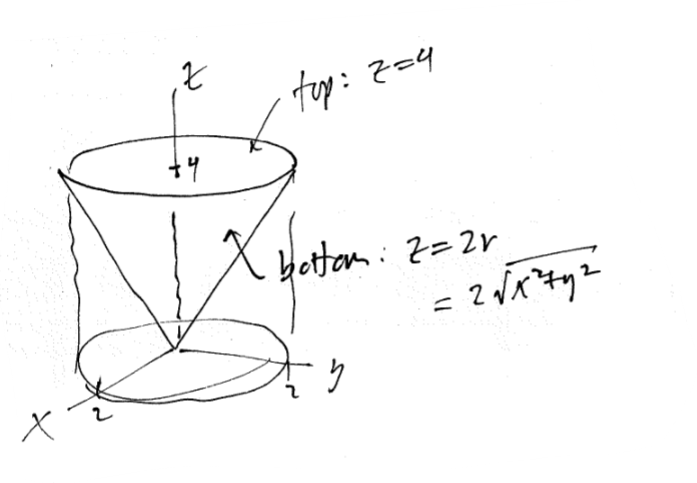 z
top: z=4
4
bottom: z=2r
= 2√x²+y²
y
2
x
2